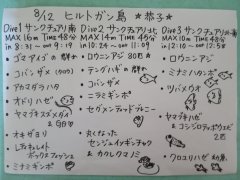 8/12 ヒルトガン島 ☆恭子☆
Dive1 サンクチュアリ南
MAX 16m Time 48分
in 8:31 ~ 9:19 out
・ゴマアイゴの群れ
・コバンザメ
・アカマダラハタ
・オドリハゼ
・ヤマブキスズメダイ
・オキザヨリ
・ミナミギンポ
Dive2 サンクチュアリ北
MAX 14m Time 45分
in 10:24 ~ 11:09 out
・ロウニンアジ 80匹
・テングハギの群れ
・コバンザメ
・ニラミギンポ
・丸くなった
センジュイソギンチャク
& カクレクマノミ
Dive3 サンクチュアリ
MAX 10m Time 48分
in 12:10 ~ 12:58 out
・ロウニンアジ
・ミナミハタンポ
・リュウキュウ
・ヤマブキハゼ
&コシジロテッポウエビ
2匹
・クロユリハゼ 幼魚